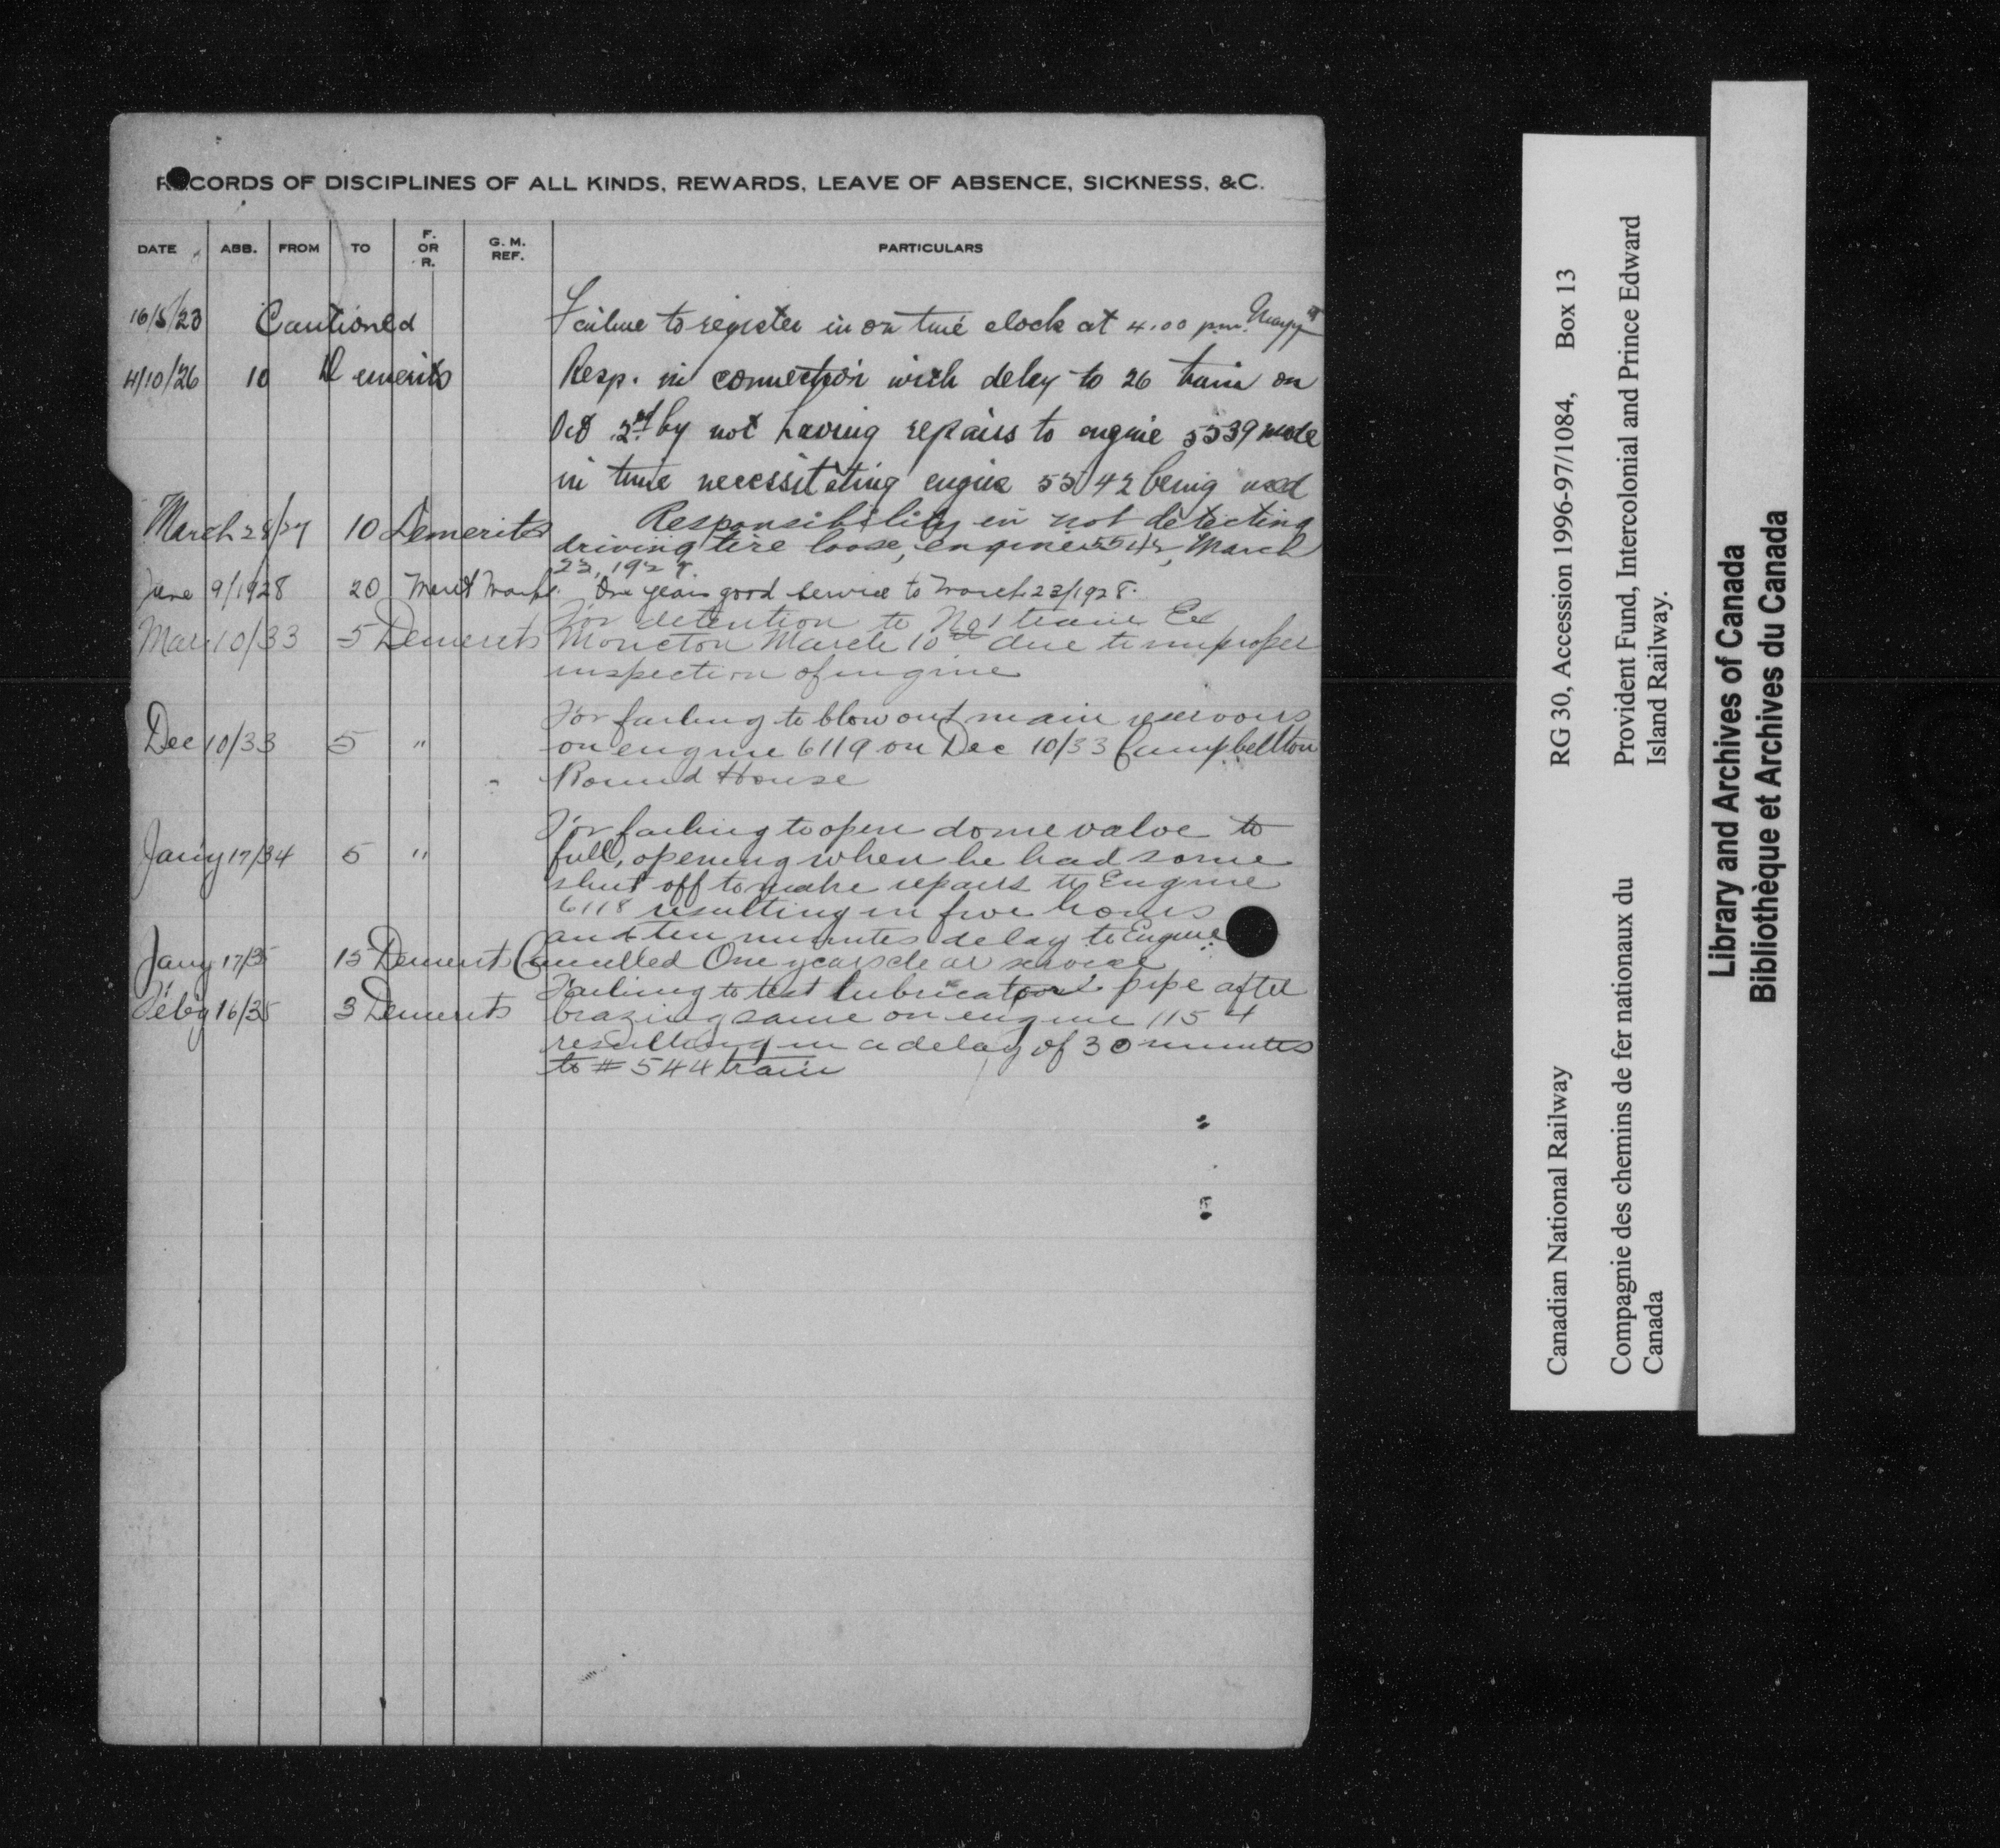 RECORDS OF DISCIPLINES OF ALL KINDS, REWARDS, LEAVE OF ABSENCE, SICKNESS, &C.
DATE ABB. FROM TO F. OR R. G. M. REF. PARTICULARS
16/5/23 Cautioned Failure to register in on time clock at 4.00 p.m.
4/10/26 10 Demerits Resp. in connection with delay to 26 train on
Oct 2nd by not having repairs to engine 5539 made
in time necessitating engine 5542 being used
March 28/27 10 Demerits Responsibility in not detecting
driving tire loose, engine 5542, March
23, 192
June 9/1928 20 Merit Marks. One years good service to March 23/1928.
Mar 10/33 5 Demerits For detention to No 1 train Ex
Moncton March 10th due to improper
inspection of engine
For failing to blow out main reservoirs
Dec 10/33 5 " on engine 6119 on Dec 10/33 Campbellton
Round House
For failing to open dome valve to
Jany 17/34 5 " full, opening when he had same
shut off to make repairs to Engine
6118 resulting in five hours
and ten minutes delay to Engine
Jany 17/35 15 Demerit Cancelled One years clear service
Failing to test lubricator pipe after
Feby 16/35 3 Demerits brazing same on engine 1154
resulting in a delay of 30 minutes
to # 544 train
Canadian National Railway RG 30, Accession 1996-97/1084, Box 13
Compagnie des chemins de fer nationaux du Canada
Provident Fund, Intercolonial and Prince Edward Island Railway.
Library and Archives of Canada
Bibliothèque et Archives du Canada